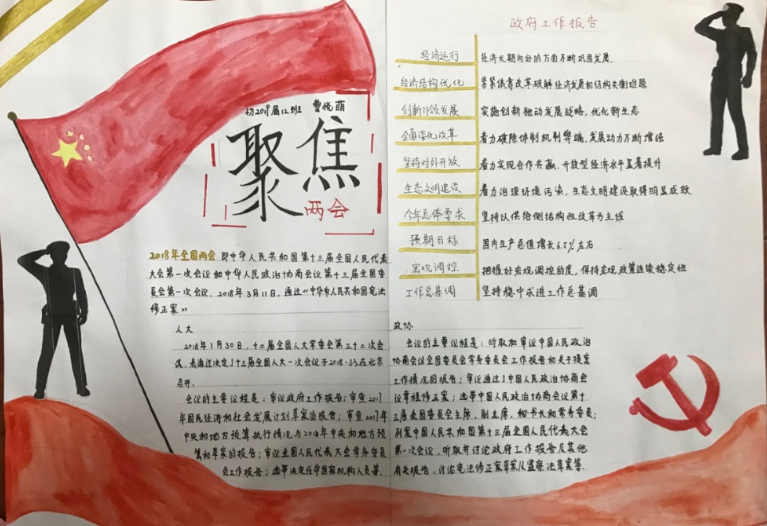 初2019届12班 曹悦萌
聚焦
两会
2018年全国两会 即中华人民共和国第十三届全国人民代表
大会第一次会议和中华人民政治协商会议第十三届全国委
员会第一次会议。2018年3月11日，通过《中华人民共和国宪法
修正案》
人大
2018年1月30日，十二届全国人大常委会第三十二次会
议，表通过决定了十三届全国人大一次会议于2018.3.5在北京
召开。
会议的主要议程是：审议政府工作报告；审查2017
年国民经济和社会发展计划草案的报告；审查2017年
中央和地方预算执行情况与2018年中央和地方预
算和草案的报告；审议全国人民代表大会常务委员
会工作报告；选举决定任命国家机构人员等。
政府工作报告
经济运行 经济长期向好的方面不断巩固发展
经济结构优化 紧紧依靠改革破解经济发展和结构失衡难题
创新引领发展 实施创新驱动发展战略，优化新生态
全面深化改革 着力破除体制机制弊端，发展动力不断增强
坚持对外开放 着力实现合作共赢，开放型经济水平显著提升
生态文明建设 着力治理环境污染，生态文明建设取得明显成效
今年总体要求 坚持以供给侧结构性改革为主线
预期目标 国内生产总值增长6.5%左右
宏观调控 把握好宏观调控的度，保持宏观政策连续稳定性
工作总基调 坚持稳中求进工作总基调
政协
会议的主要议程是：听取和审议中国人民政治
协商会议全国委员会常务委员会工作报告和关于提案
工作情况的报告；审议通过了中国人民政治协商会
议章程修正案；选举中国人民政治协商会议第十
三届全国委员会主席，副主席，秘书长和常务委员；
列席中国人民共和国第十三届全国人民代表大会
第一次会议，听取并讨论政府工作报告及其他
有关报告，讨论宪法修正案草案及监察法草案等。